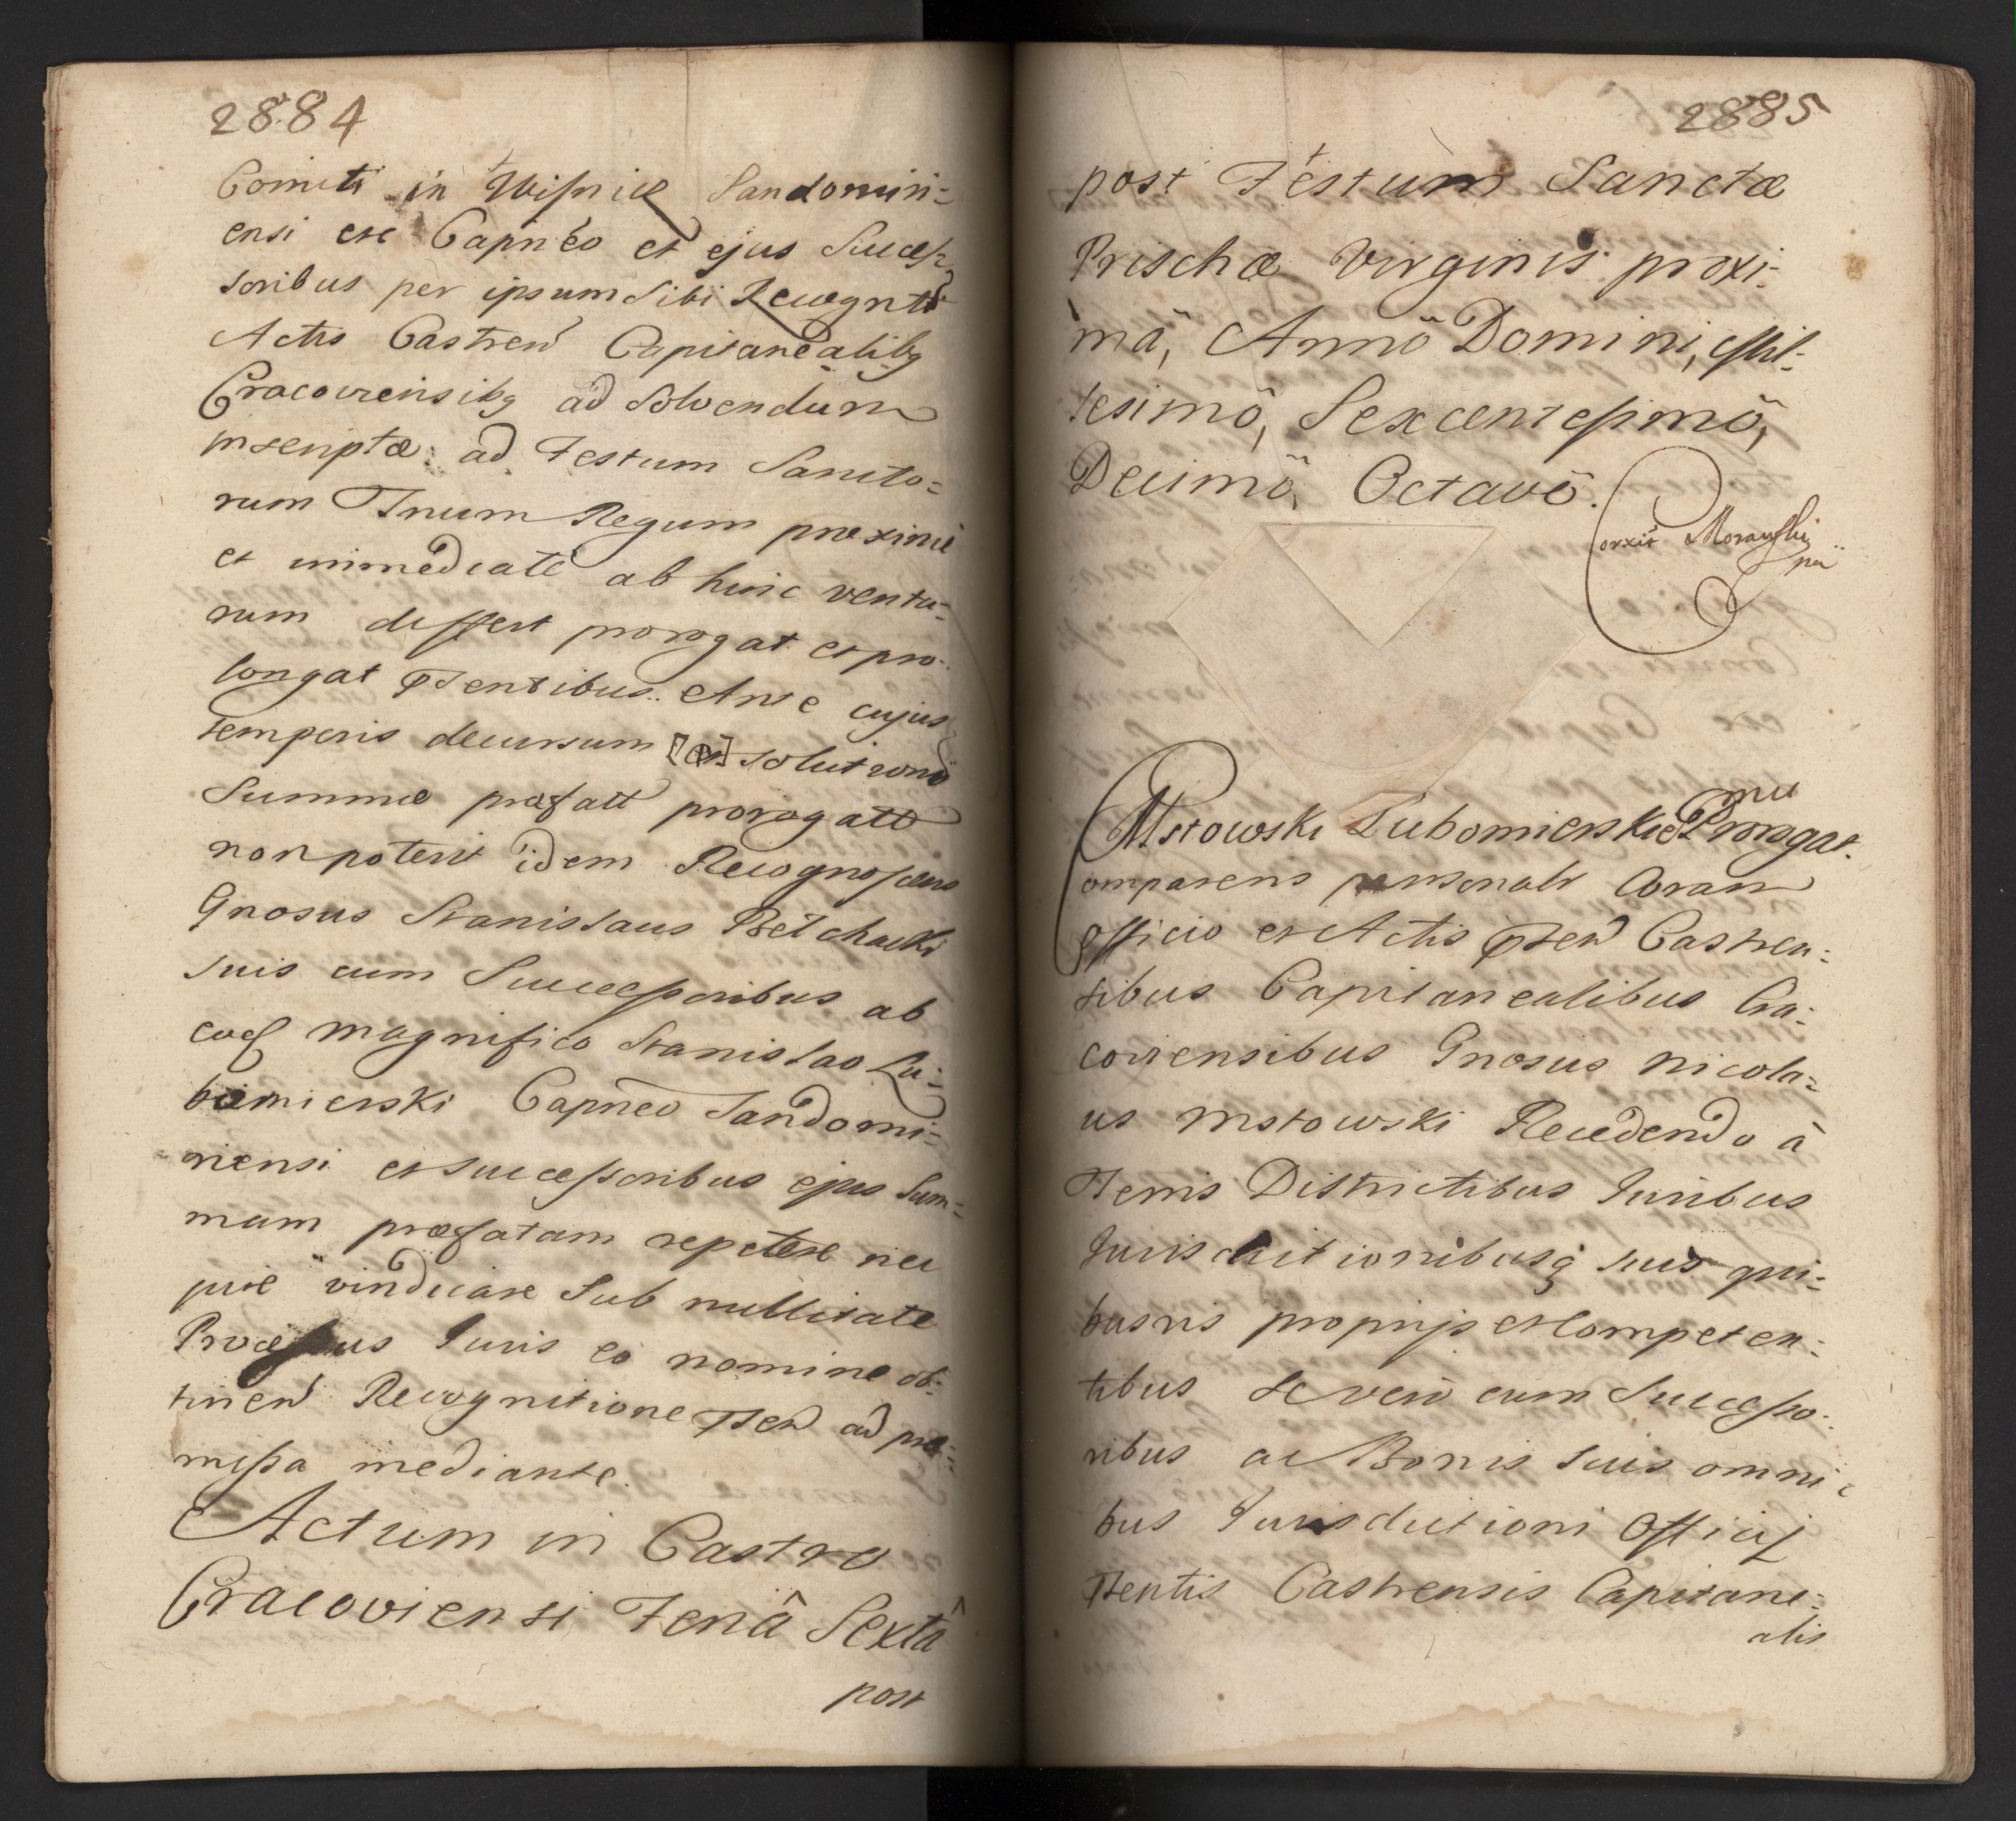 2884
Comiti in Wiſnicz Sandomiri=
ensi etc Capnéo et ejus Succeſ=
soribus per ipsum Sibi Recognit
Actis Castren Capitanealibg
Cracoviensibg ad Solvendum
inscriptæ ad Festum Sancto=
rum Trium Regum proxime
et immediatè ab hinc ventu=
rum differt prorogat et pro=
longat Ptentibus. Ante cujus
temporis decursum [et] solutionis
Summæ præfatt prorogatt
non poterit idem Recognoſcens
Gnosus Stanislaus Betchacki
suis cum Succeſsoribus ab
eod Magnifico Stanislao Lu=
bomierski Capneo Sandomi=
riensi et succeſsoribus ejus Sum=
mam præfatam repetere nec
jure vindicare Sub nullitate
Proceſsus Juris eo nomine ob=
tinen Recognitione Pten ad præ=
miſsa mediante.
Actum in Castro
Cracoviensi Feriâ Sextâ
post
2885
post Festum Sanctæ
Prischæ Virginis proxi=
mâ, Annô Domini, Mil=
lesimô, Sexcenteſimô,
Decimô Octavô.
Corxit Morawſki
mp
Mstowski Lubomierskiemu Prorogat.
Comparens personalr Coram
Officio et Actis Pten Castren=
sibus Capitanealibus Cra=
coviensibus Gnosus Nicola=
us Mstowski Recedendo à
Terris Districtibus Juribus
Jurisdictionibusq suis qui=
busvis proprijs et Competen=
tibus Se vero cum Succeſso=
ribus ac Bonis Suis omni=
bus Jurisdictioni Officij
Ptentis Castrensis Capitane=
alis